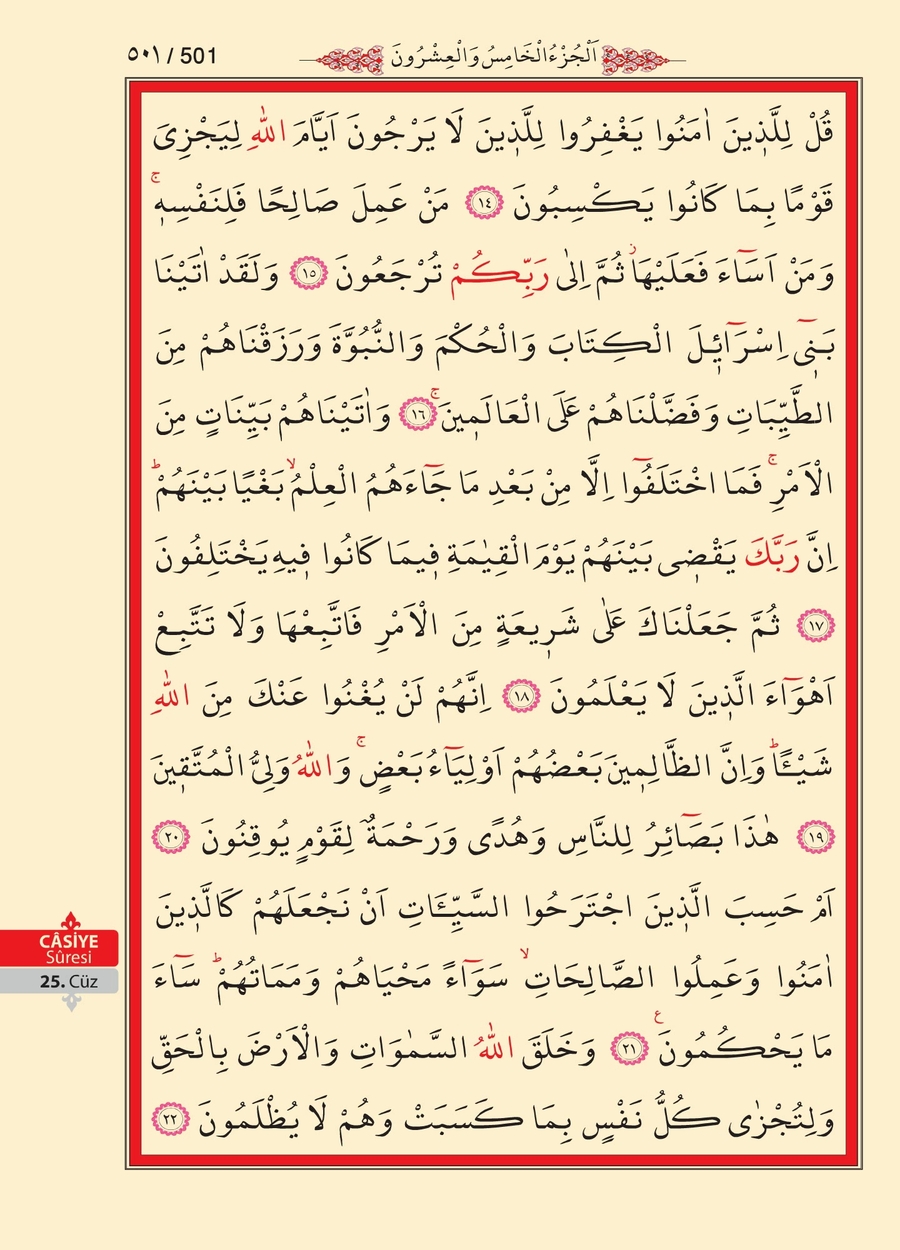 ٥٠١ / 501
اَلْجُزْءُ الْخَامِسُ وَالْعِشْرُونَ
قُلْ لِلَّذ۪ينَ اٰمَنُوا يَغْفِرُوا لِلَّذ۪ينَ لَا يَرْجُونَ اَيَّامَ اللّٰهِ لِيَجْزِيَ
قَوْمًا بِمَا كَانُوا يَكْسِبُونَ ﴿١٤﴾ مَنْ عَمِلَ صَالِحًا فَلِنَفْسِه۪ۚ
وَمَنْ اَسَٓاءَ فَعَلَيْهَاۘ ثُمَّ اِلٰى رَبِّكُمْ تُرْجَعُونَ ﴿١٥﴾ وَلَقَدْ اٰتَيْنَا
بَن۪ٓي اِسْرَٓائ۪لَ الْكِتَابَ وَالْحُكْمَ وَالنُّبُوَّةَ وَرَزَقْنَاهُمْ مِنَ
الطَّيِّبَاتِ وَفَضَّلْنَاهُمْ عَلَى الْعَالَم۪ينَۚ ﴿١٦﴾ وَاٰتَيْنَاهُمْ بَيِّنَاتٍ مِنَ
الْاَمْرِۚ فَمَا اخْتَلَفُٓوا اِلَّا مِنْ بَعْدِ مَا جَٓاءَهُمُ الْعِلْمُۙ بَغْيًا بَيْنَهُمْۜ
اِنَّ رَبَّكَ يَقْض۪ي بَيْنَهُمْ يَوْمَ الْقِيٰمَةِ ف۪يمَا كَانُوا ف۪يهِ يَخْتَلِفُونَ
﴿١٧﴾ ثُمَّ جَعَلْنَاكَ عَلٰى شَر۪يعَةٍ مِنَ الْاَمْرِ فَاتَّبِعْهَا وَلَا تَتَّبِعْ
اَهْوَٓاءَ الَّذ۪ينَ لَا يَعْلَمُونَ ﴿١٨﴾ اِنَّهُمْ لَنْ يُغْنُوا عَنْكَ مِنَ اللّٰهِ
شَيْـًٔاۜ وَاِنَّ الظَّالِم۪ينَ بَعْضُهُمْ اَوْلِيَٓاءُ بَعْضٍۚ وَاللّٰهُ وَلِيُّ الْمُتَّق۪ينَ
﴿١٩﴾ هٰذَا بَصَٓائِرُ لِلنَّاسِ وَهُدًى وَرَحْمَةٌ لِقَوْمٍ يُوقِنُونَ ﴿٢٠﴾
اَمْ حَسِبَ الَّذ۪ينَ اجْتَرَحُوا السَّيِّـَٔاتِ اَنْ نَجْعَلَهُمْ كَالَّذ۪ينَ
اٰمَنُوا وَعَمِلُوا الصَّالِحَاتِۙ سَوَٓاءً مَحْيَاهُمْ وَمَمَاتُهُمْۜ سَٓاءَ
مَا يَحْكُمُونَ۟ ﴿٢١﴾ وَخَلَقَ اللّٰهُ السَّمٰوَاتِ وَالْاَرْضَ بِالْحَقِّ
وَلِتُجْزٰى كُلُّ نَفْسٍ بِمَا كَسَبَتْ وَهُمْ لَا يُظْلَمُونَ ﴿٢٢﴾
CÂSİYE
Sûresi
25. Cüz